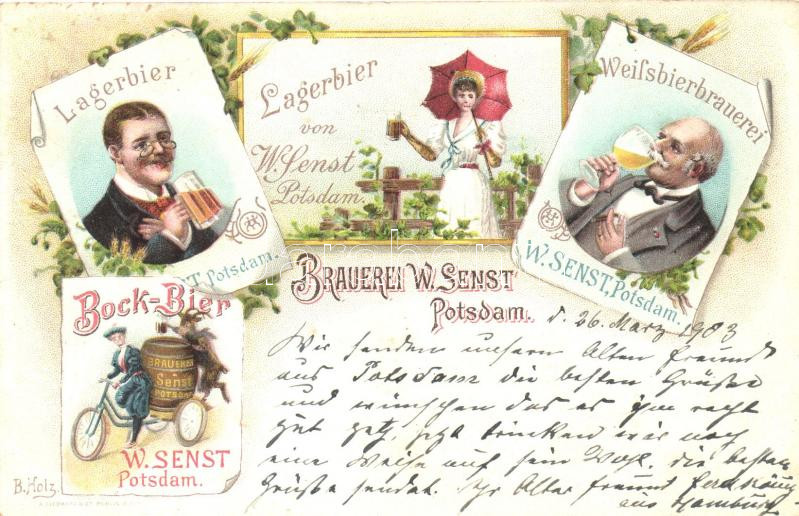 Lagerbier
W. Senst, Potsdam.
Lagerbier
von
W. Senst
Potsdam.
Weißbierbrauerei
W. SENST, Potsdam.
BRAUEREI W. SENST
Potsdam.
d. 26. März 1903
Wir senden unsern Alten Freund
aus Potsdam die besten Grüße
und wünschen das es ihm recht
gut geht, jetzt trinken wir noch
eine Weiße auf sein Wohl, die besten
Grüße sendet. Ihr Alter Freund
aus Hamburg
Bock-Bier
BRAUEREI
Senst
POTSDAM
W. SENST
Potsdam.
B. Holz.